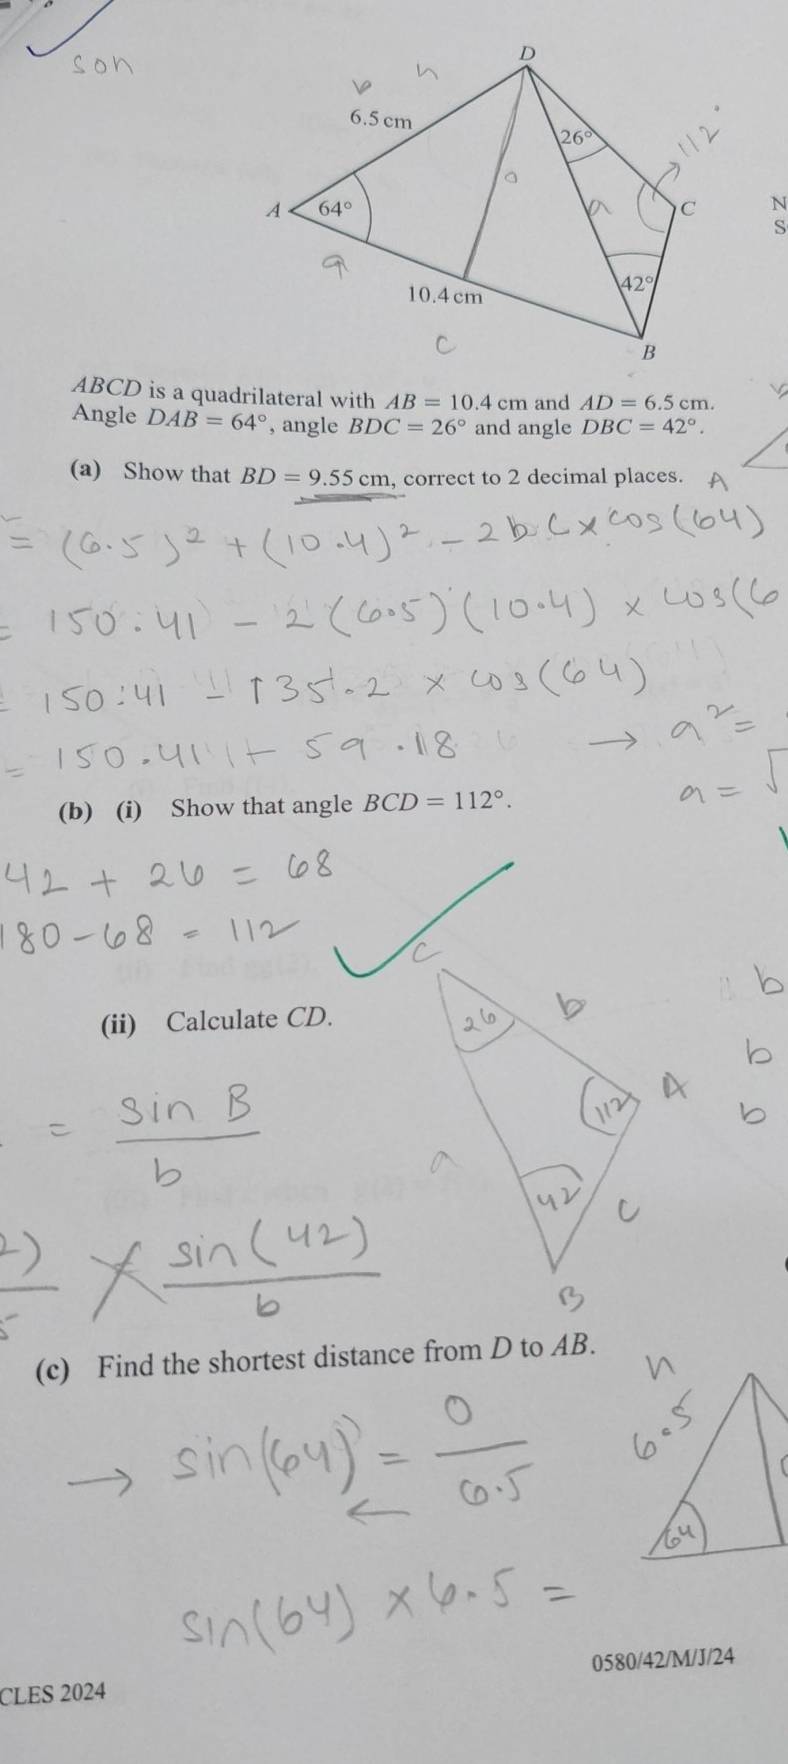 son
D
b h
6.5 cm
26°
112°
o
A 64°
a
C
N
S
a
10.4 cm
42°
c
B
ABCD is a quadrilateral with AB = 10.4 cm and AD = 6.5 cm.
Angle DAB = 64°, angle BDC = 26° and angle DBC = 42°.
(a) Show that BD = 9.55 cm, correct to 2 decimal places.
A
= (6.5)² + (10.4)² - 2bc × cos(64)
= 150.41 - 2(6.5)(10.4) × cos(6
= 150.41 - 135.2 × cos(64)
= 150.41 - 59.18 → a² =
a = √
(b) (i) Show that angle BCD = 112°.
42 + 26 = 68
180 - 68 = 112
C
(ii) Calculate CD.
26 b
b
b
b
112 A
= sin B
b
a
42 c
2)
5
× sin(42)
b
B
(c) Find the shortest distance from D to AB.
h
6.5
→ sin(64) = o
6.5
←
64
sin(64) × 6.5 =
0580/42/M/J/24
CLES 2024